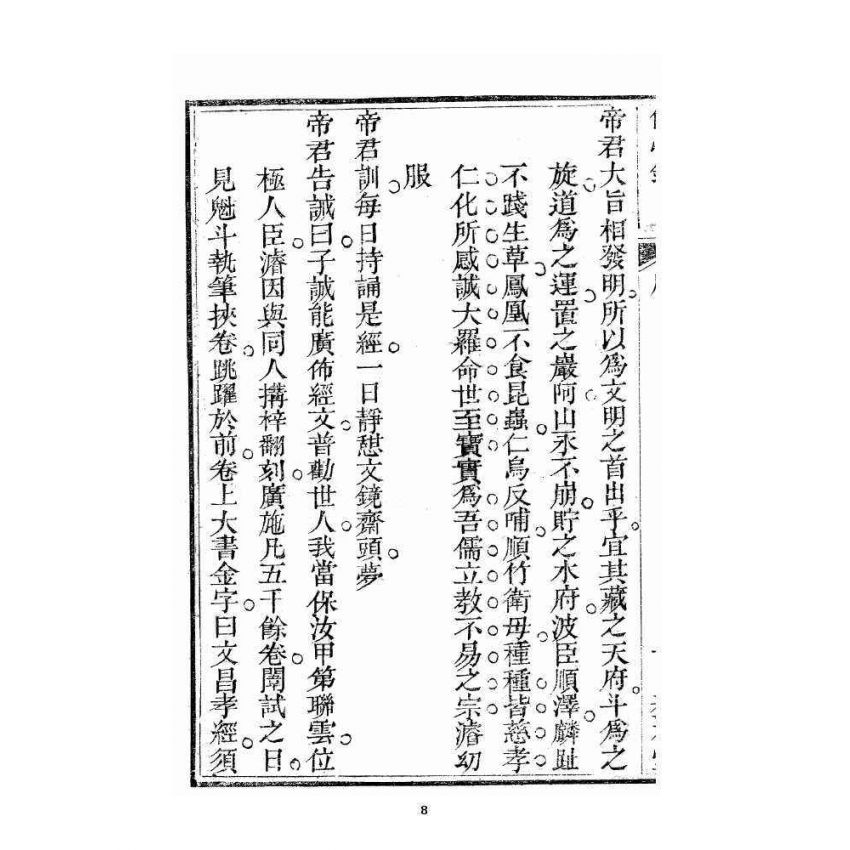 帝君大旨相發明所以爲文明之首出乎宜其藏之天府斗爲之
旋道爲之運置之巖阿山永不崩貯之水府波臣順澤麟趾
不踐生草鳳凰不食昆蟲仁烏反哺順竹衛母種種皆慈孝
仁化所感誠大羅命世至寶實爲吾儒立教不易之宗濬幼
服
帝君訓每日持誦是經一日靜憩文鏡齋頭夢
帝君告誡曰子誠能廣佈經文普勸世人我當保汝甲第聯雲位
極人臣濬因與同人搆梓翻刻廣施凡五千餘卷闈試之日
見魁斗執筆挾卷跳躍於前卷上大書金字曰文昌孝經須
8